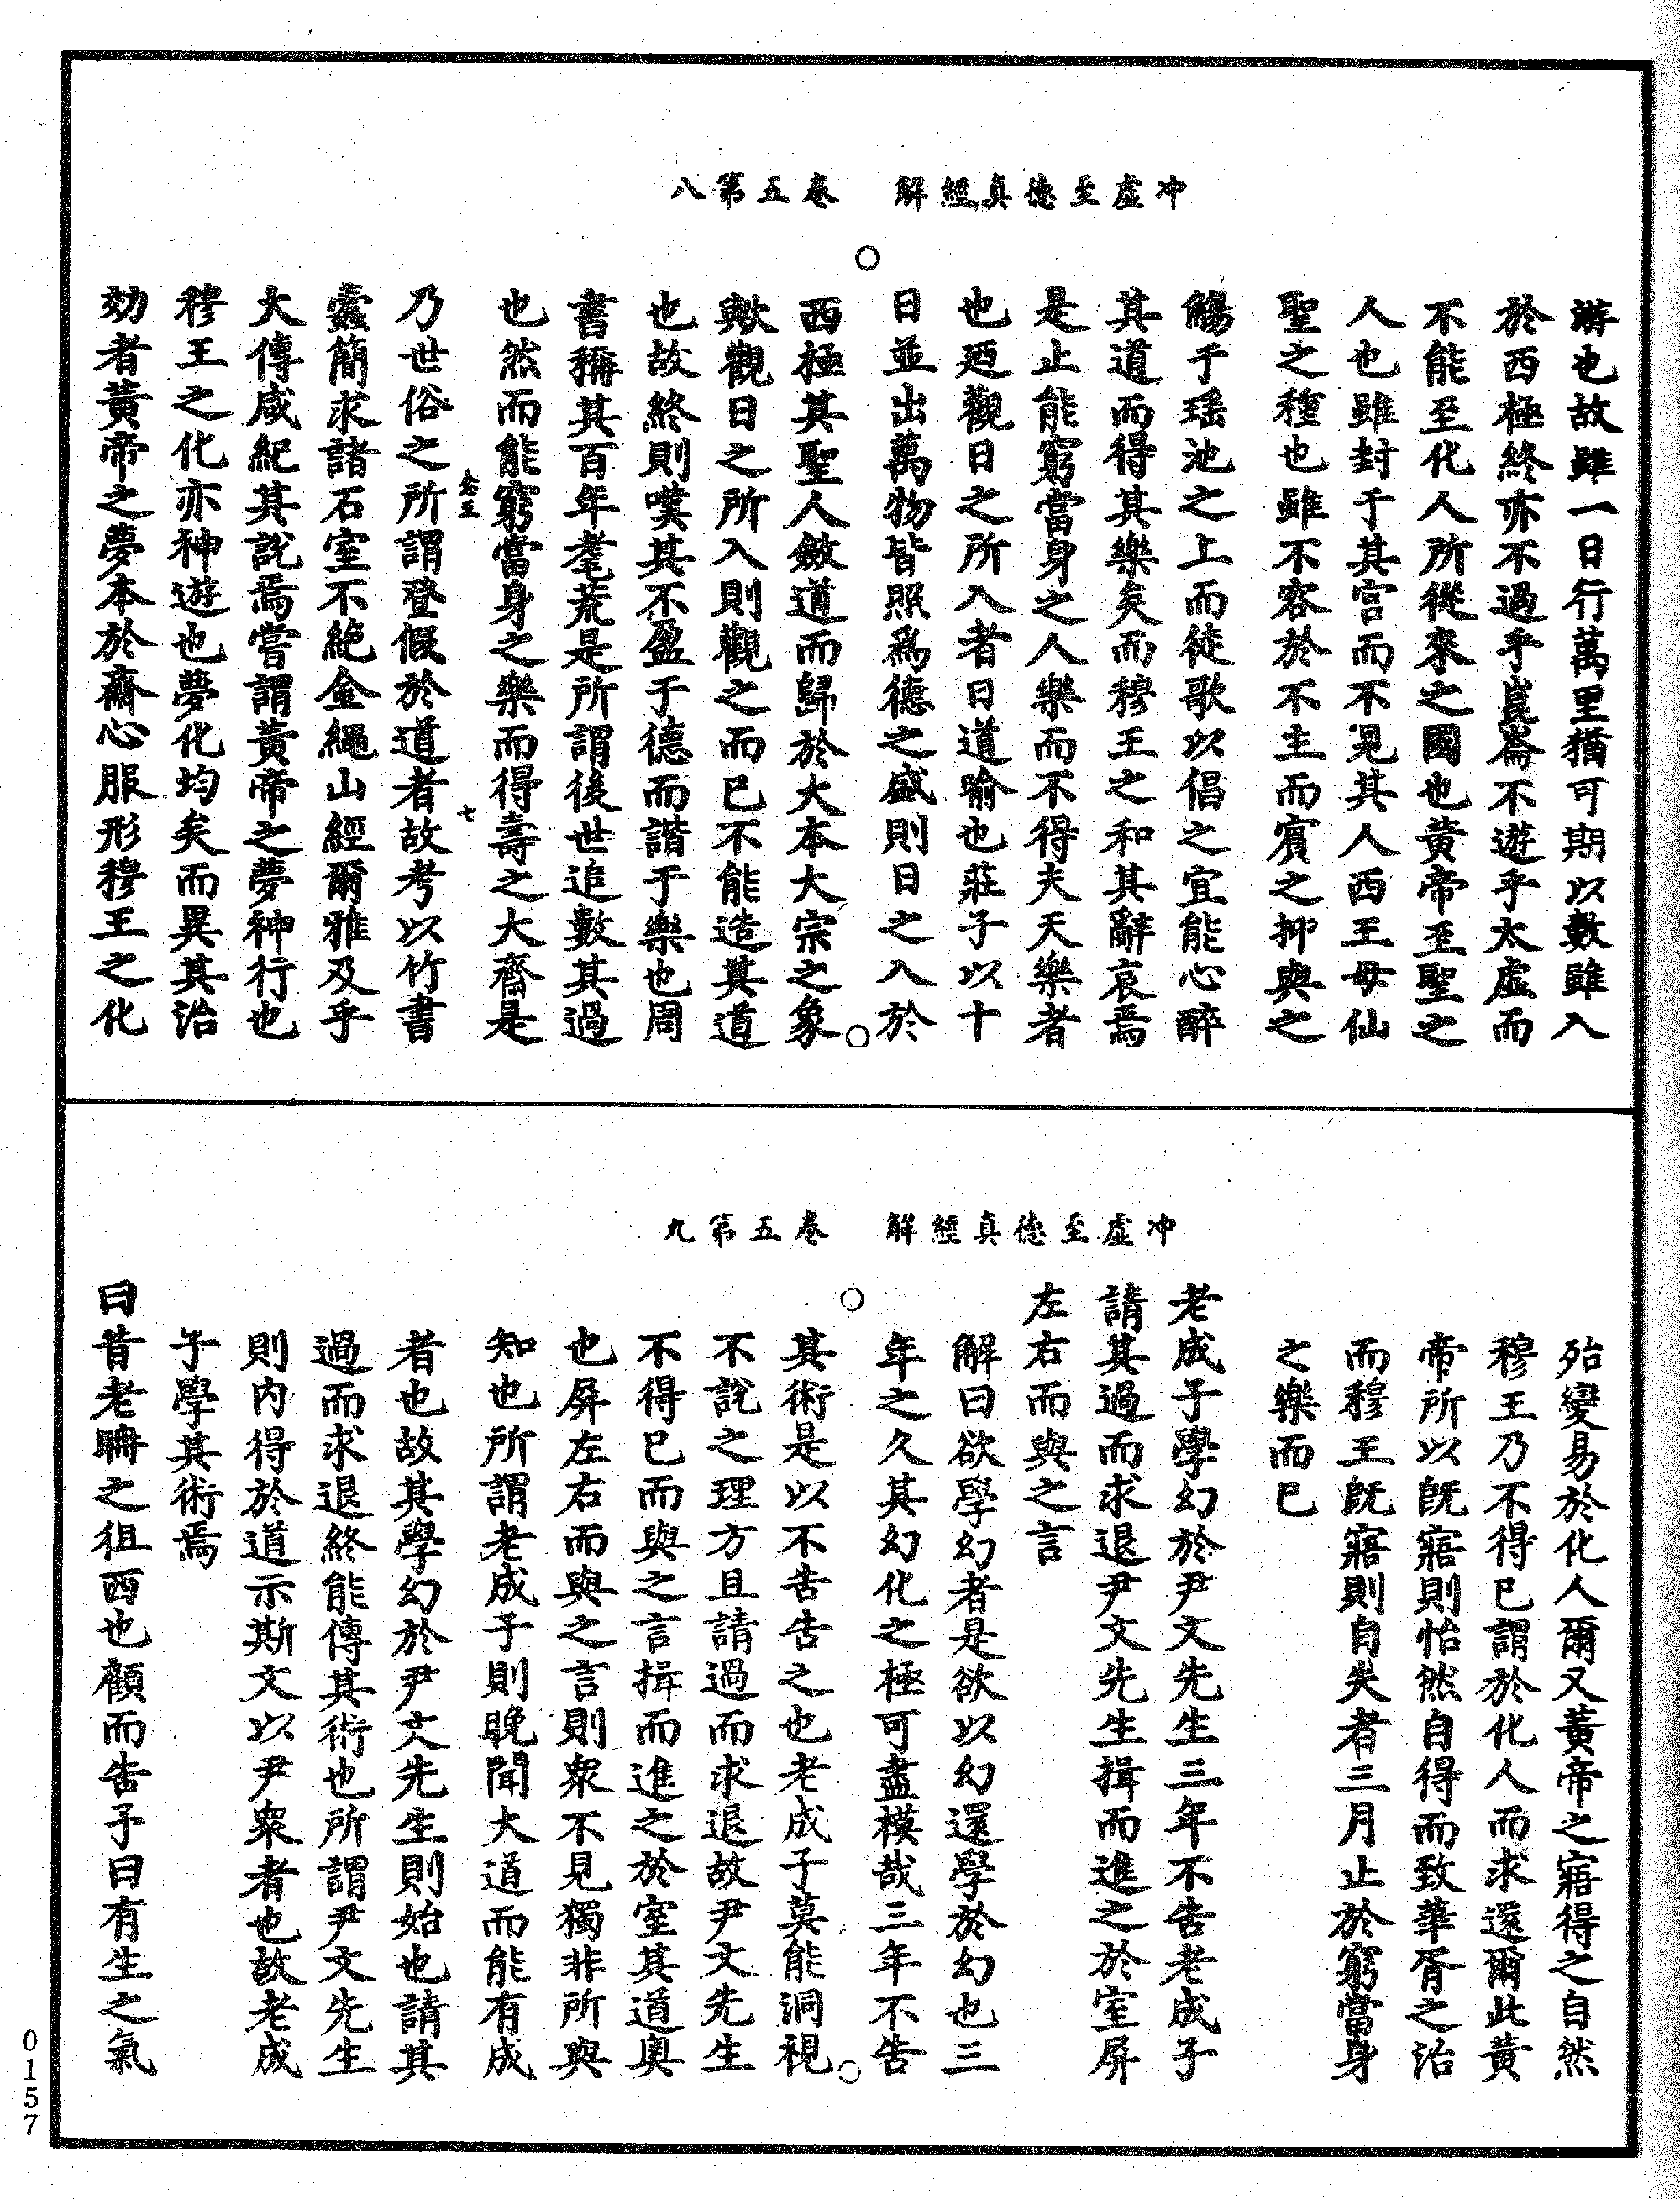 冲虛至德真經解　卷五第八
游也故雖一日行萬里猶可期以數雖入
於西極終亦不過乎崑崙不遊乎太虛而
不能至化人所從來之國也黃帝至聖之
人也雖封于其宫而不見其人西王母仙
聖之種也雖不容於不主而賓之抑與之
觴于瑶池之上而徒歌以倡之宜能心醉
其道而得其樂矣而穆王之和其辭哀焉
是止能窮當身之人樂而不得夫天樂者
也廼觀日之所入者日道喻也莊子以十
日並出萬物皆照爲德之盛則日之入於
西極其聖人斂道而歸於大本大宗之象
歟觀日之所入則觀之而已不能造其道
也故終則嘆其不盈于德而諧于樂也周
書稱其百年耄荒是所謂後世追數其過
也然而能窮當身之樂而得壽之大齊是
乃世俗之所謂登假於道者故考以竹書
七
蠹簡求諸石室不絶金繩山經爾雅及乎
大傳咸紀其說焉嘗謂黃帝之夢神行也
穆王之化亦神遊也夢化均矣而異其治
効者黃帝之夢本於齋心服形穆王之化
冲虛至德真經解　卷五第九
殆變易於化人爾又黃帝之寤得之自然
穆王乃不得已謂於化人而求還爾此黃
帝所以既寤則怡然自得而致華胥之治
而穆王既寤則自失者三月止於窮當身
之樂而已
老成子學幻於尹文先生三年不告老成子
請其過而求退尹文先生揖而進之於室屏
左右而與之言
解曰欲學幻者是欲以幻還學於幻也三
年之久其幻化之極可盡模哉三年不告
其術是以不告告之也老成子莫能洞視
不說之理方且請過而求退故尹文先生
不得已而與之言揖而進之於室其道奧
也屏左右而與之言則衆不見獨非所與
知也所謂老成子則晚聞大道而能有成
者也故其學幻於尹文先生則始也請其
過而求退終能傳其術也所謂尹文先生
則内得於道示斯文以尹衆者也故老成
子學其術焉
曰昔老聃之徂西也顧而告予曰有生之氣
0157